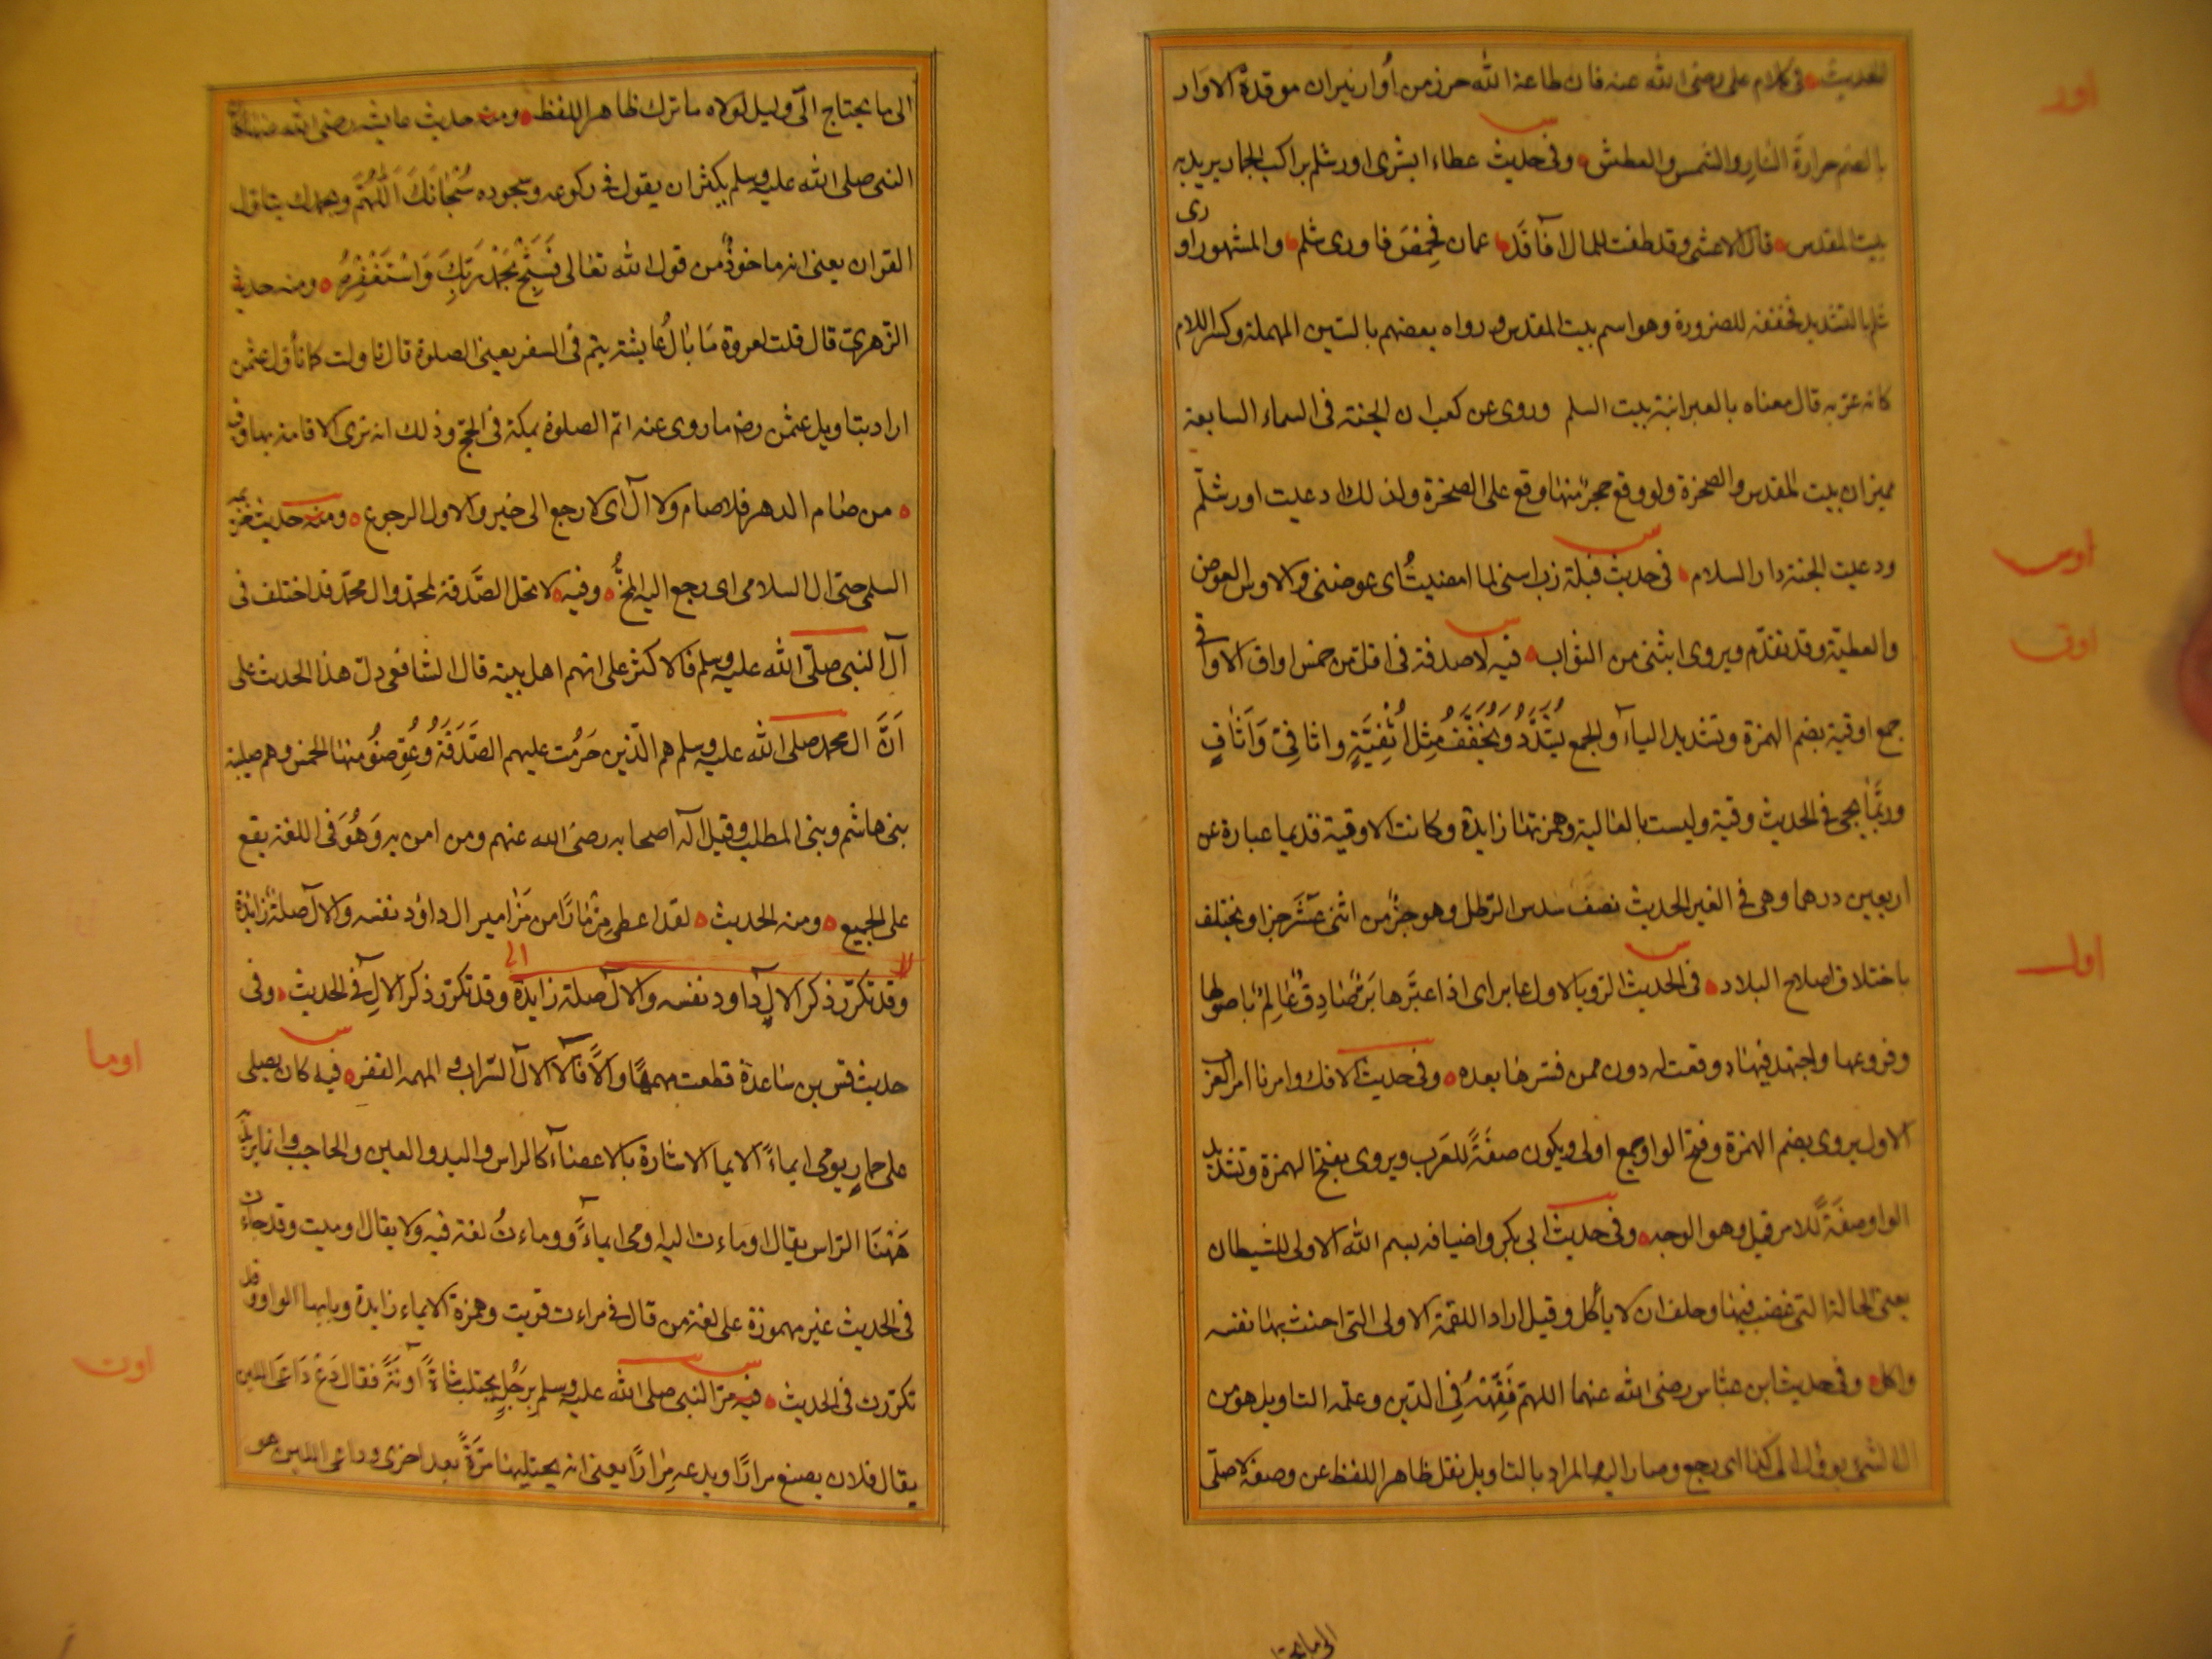 للحديث في كلام على رضى الله عنه فان طاعة الله حرز من أُوار نيران موقدة الاوار
اور
بالضم حرارة النارِ والشمس والعطش وفى حديث عطاء ابشرى اورشلم براكب الحمار يريد به
بيت المقدس قال الاعشى وقد طفت للمال آفاقه عمان فحِمْصَ فاورى شلم والمشهور اورى
شلم بالتشديد فخففه للضرورة وهو اسم بيت المقدس ورواه بعضهم بالسين المهملة وكسر اللام
كانه عربه قال معناه بالعبرانية بيت السلم وروى عن كعب ان الجنة فى السماء السابعة
بميزان بيت المقدس والصخرة ولو وقع حجر منها وقع على الصخرة ولذلك ادعيت اورشلّم
ودعيت الجنة دار السلام في حديث قيلة رب اسنى لما امضيتُ اى عوضنى والاوس العوض
اوس
والعطيّة وقد تقدّم ويروى اثبنى من الثواب فيه لا صدقة فى اقل من خمس اواق الاواقى
اوق
جمع اوقية بضم الهمزة وتشديد الياء والجمع يُشَدَّدُ وَيُخَفَّفُ مِثل اُثْفِيَّةٍ واثافِىّ وَاَثافٍ
وربّما يجى فى الحديث وقية وليست بالعالية وهمزتها زايدة وكانت الاوقية قديما عبارة عن
اربعين درهما وهى فى الغير الحديث نصف سدس الرطل وهو جزؤ من اثنى عشَرَ جزا ويختلف
باختلاف اصلاح البلاد في الحديث الرويا لاول عابر اى اذا عبَّرها بَرٌّ صَادِقٌ عَالِمٌ باصولها
اول
وفروعها واجتهد فيها وقعت له دون ممن فسّرها بعده وفى حديث الافك وامرنا امر العرب
الاول يروى بضم الهمزة وفتح الواو جمع اولى ويكون صفَةً للعَرب ويروى بفتح الهمزة وتشديد
الواو صِفَةً للامر قيل وهو الوجه وفى حديث ابى بكر واضيافه بسم الله الاولى للشيطان
يعنى الحالة التى غضب فيها وحلف ان لا يأكل وقيل اراد اللقمة الاولى التى احنث بها نفسه
واكل وفى حديث ابن عبّاس رضى الله عنهما اللهمّ فَقِّهْهُ فِى الدّين وعلّمه التاويل هو من
ال الشئ يوول الى كذا اى رجع وصار اليه المراد بالتاويل نقل ظاهر اللفظ عن وصفه الاصلّى
الى ما يحتا
الى ما يحتاج الىّ دليل لولاه ما ترك ظاهر اللفظ ومنه حديث عايشه رضى الله عنها كان
النبى صلى الله عليه وسلم يكثر ان يقول فى ركوعه وسجوده سُبْحَانَكَ اَللّهُمَّ وبحمدك يتاول
القران يعنى انه ماخوذٌ من قول الله تعالى فَسَبِّحْ بِحَمْدِ رَبِّكَ وَاسْتَغْفِرْهُ ومنه حديث
الزّهرى قال قلت لعروة مَا بَالُ عايشة يتم فى السفر يعنى الصلوة قال تاولت كما تأول عثمن
اراد بتاويل عثمن رضه ما روى عنه اتم الصلوة بمكة فى الحجّ وذلك انه نوى الاقامة بها وفيه
من صام الدهر فلا صام ولا ال اى لا رجع الى خير والاول الرجوع ومنه حديث خزيمة
السلمى حتى ال السلامى اى رجع اليه المخُّ وفيه لا تحل الصَّدقة لمحمّد وال محمّد قد اختلف فى
آل النبى صلّى الله عليه وسلم فالاكثر على انهم اهل بيته قال الشافعى دلّ هذا الحديث على
اَنَّ ال محمد صلى الله عليه وسلم هم الّذين حَرُمت عليهم الصَّدَقَةُ وَعُوِّضوُ منها الخمس وهم صليبة
بنى هاشم وبنى المطلب وقيل اله اصحابه رضى الله عنهم ومن امن به وَهُوَ فى اللغة يقع
على الجميع ومنه الحديث لقد اعطى مِزْمَارًا من مَزَامير ال داؤد نفسه والال صلة زايدة
وقد تكرّر ذكر الالِ داود نفسه والال صلة زايدة وقد تكرّر ذكر الالِ فى الحديث وفى
حديث قس بن ساعدة قطعت مهمهًا وآلًا فآلًا الآل السّراب والمهمه القفر فيه كان يصلى
اوما
على حمارٍ يومى ايماءً الايما الاشارة بالاعضاء كالراس واليد والعين والحاجب وانما يريد
هٰهُنَا الرّاس يقال اوماءت اليه اومى ايماءً ووماءتُ لغة فيه ولا يقال اوميت وقد جاءت
فى الحديث غير مهموزة على لغة من قال فى قراءت قريت وهمزة الايماء زايدة وبابها الواو وقد
تكرّرت فى الحديث فيه مرّ النبى صلى الله عليه وسلم بِرَجُلٍ يحتلب شاةً آونةً فقال دَعْ دَاعِىَ اللبن
اوت
يقال فلان يصنع مرارًا ويدعه مِرَارًا يعنى انه يحتلبها مَرَّةً بعد اخرى وداعى اللبن هو